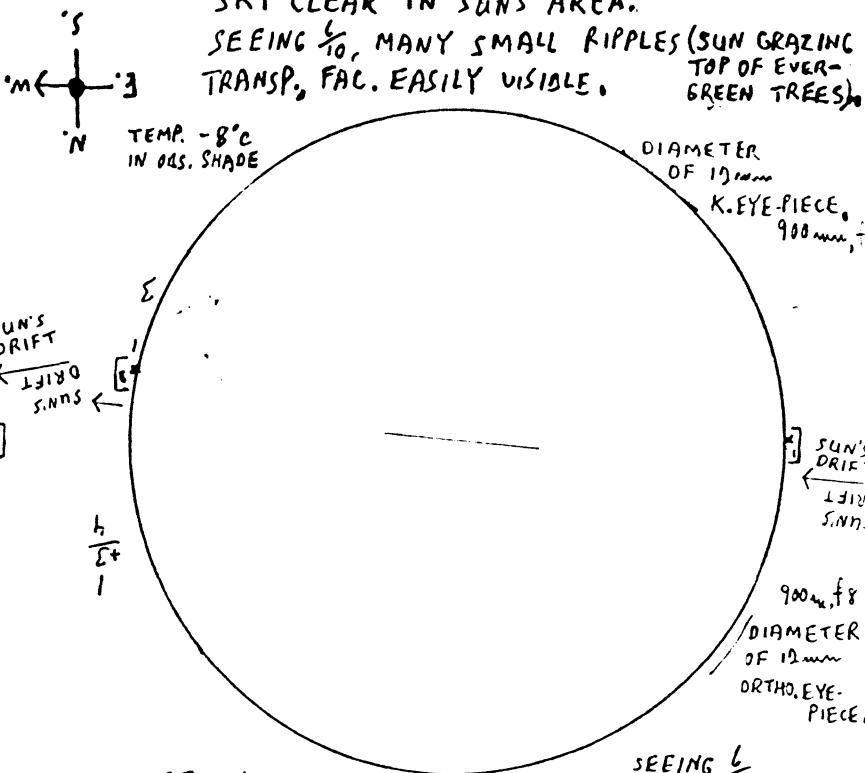 SKY CLEAR IN SUNS AREA.
SEEING 6/10, MANY SMALL RIPPLES (SUN GRAZING
TOP OF EVER-
GREEN TREES).
TRANSP., FAC. EASILY VISIBLE.
S.
W.
E.
N.
TEMP. -8°C
IN OBS. SHADE
DIAMETER
OF 12mm
K. EYE-PIECE.
900mm,
3
1
UN'S
DRIFT
SUN'S
DRIFT
SUN'S
DRIF
SUN'S
DRIFT
1
+3
4
900m, f8
DIAMETER
OF 12mm
ORTHO. EYE-
PIECE.
SEEING 6